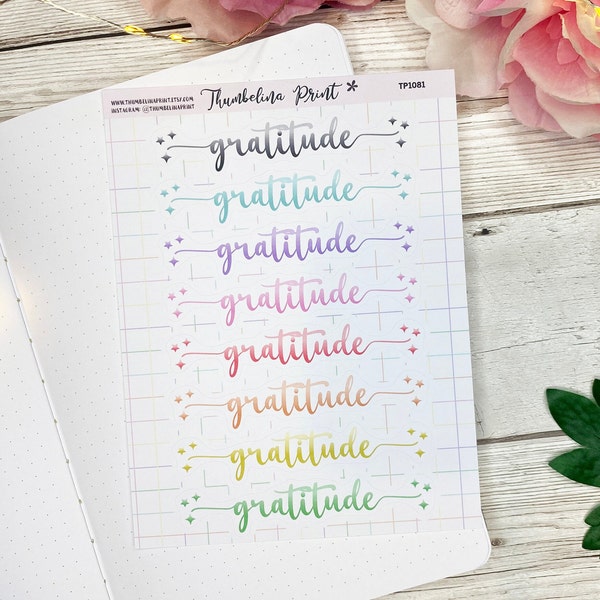 WWW.THUMBELINAPRINT.ETSY.COM
INSTAGRAM: @THUMBELINAPRINT
Thumbelina Print *
TP1081
gratitude
gratitude
gratitude
gratitude
gratitude
gratitude
gratitude
gratitude